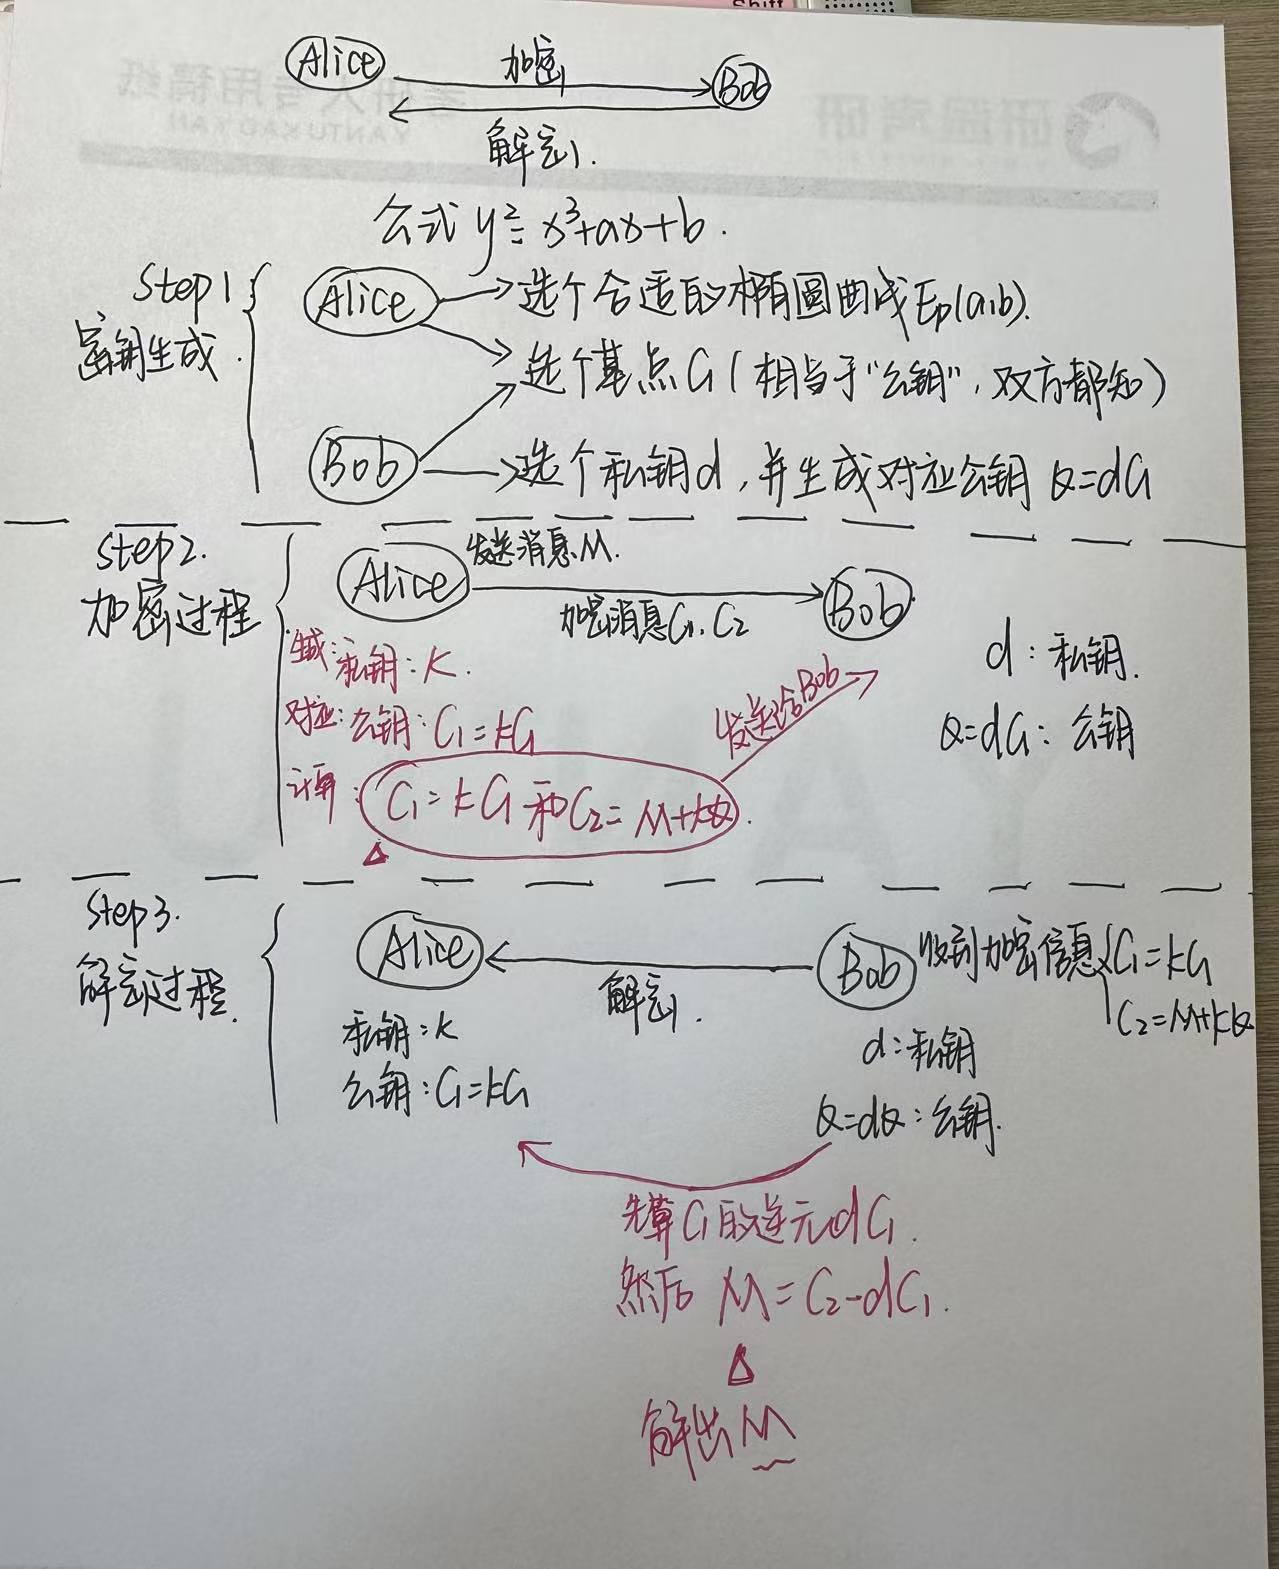 Shift
Alice
加密
Bob
解密.
公式 y²=x³+ax+b.
Step1
密钥生成.
Alice
选个合适的椭圆曲线Ep(a,b).
选个基点G(相当于"公钥",双方都知)
Bob
选个私钥d,并生成对应公钥 Q=dG
Step2.
加密过程
Alice
发送消息M.
加密消息C₁,C₂
Bob
生成:私钥:K.
对应:公钥:C₁=kG
计算:C₁=kG 和C₂=M+kQ.
发送给Bob
d:私钥.
Q=dG:公钥
Step3.
解密过程.
Alice
解密.
Bob
收到加密信息{C₁=kG
C₂=M+kQ
私钥:k
公钥:C₁=kG
d:私钥
Q=dQ:公钥.
先算C₁的逆元dC₁.
然后 M=C₂-dC₁.
解出M
研途考研
考研人专用稿纸
YANTU KAOYAN